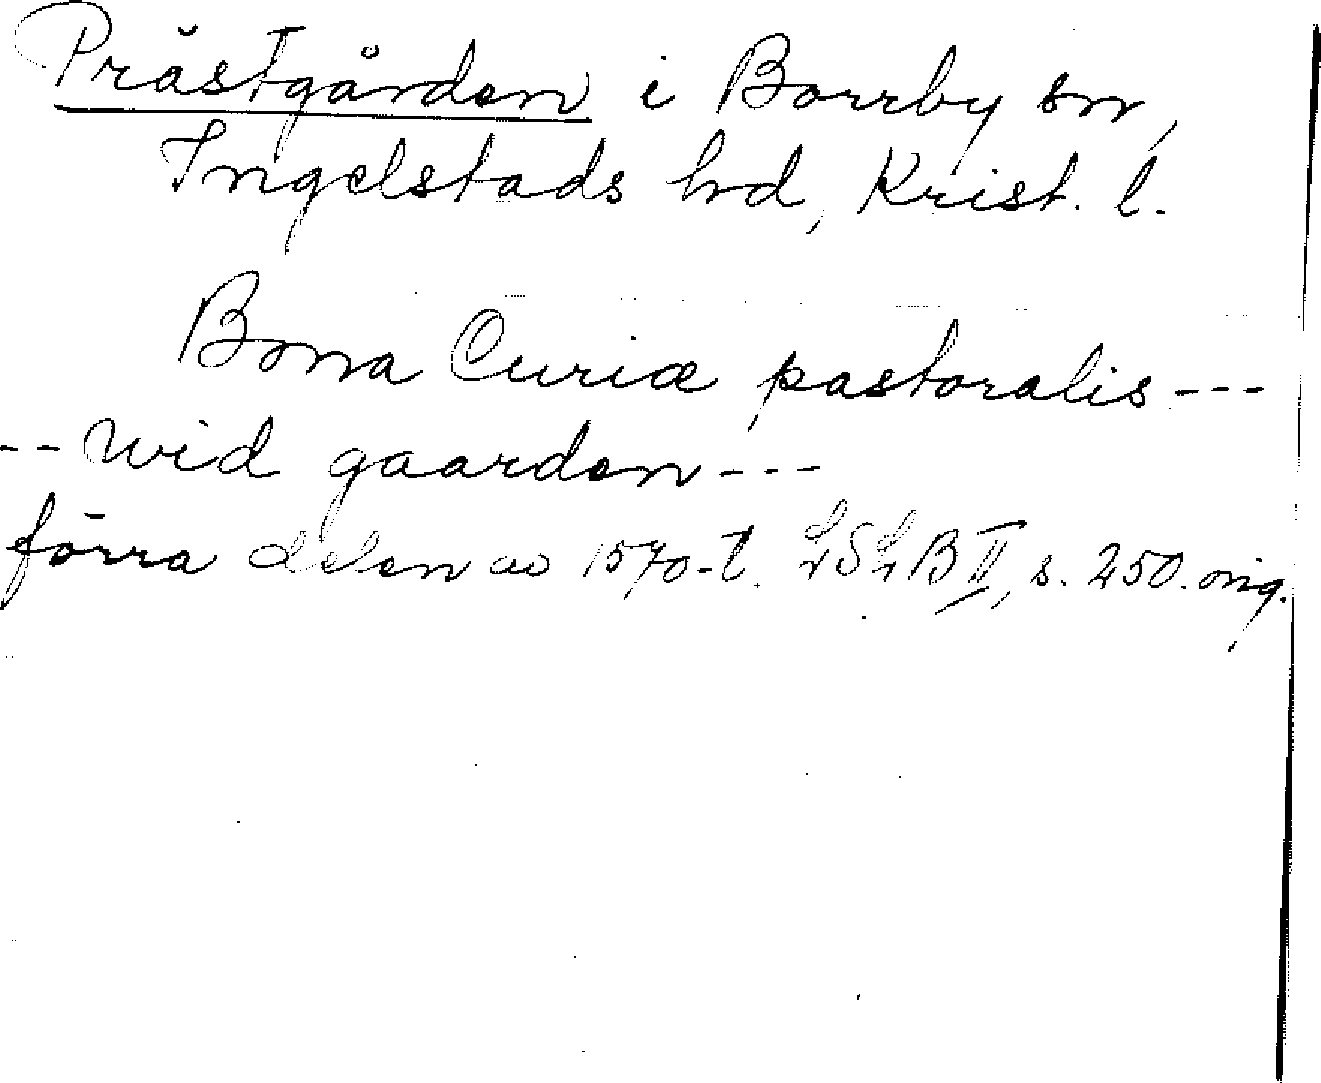 Prästgården i Borrby sn,
Ingelstads hd, Krist. l.
Bona Curiæ pastoralis ---
-- wid gaarden ---
förra delen av 1570-t. LSLB II, s. 250. orig.